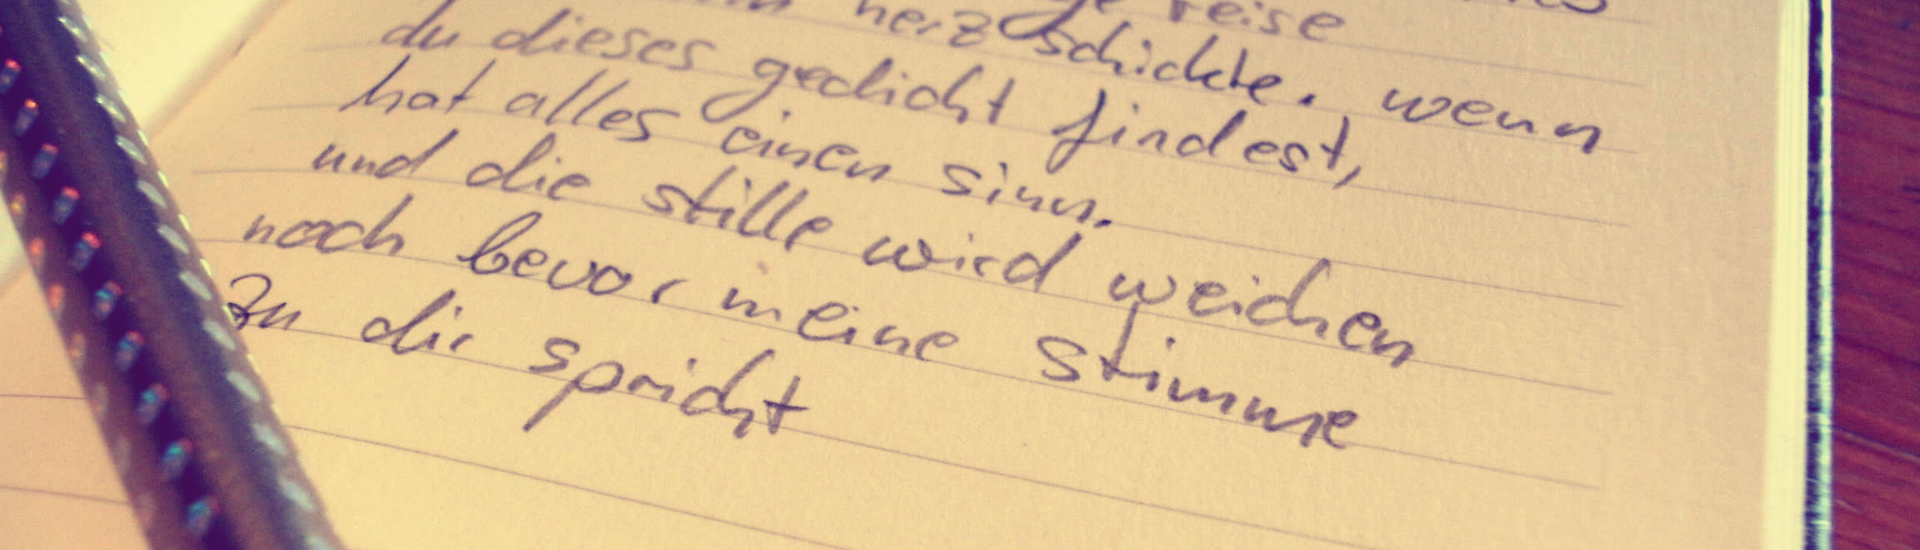 reise
herz schickte. wenn
du dieses gedicht findest,
hat alles einen sinn.
und die stille wird weichen
noch bevor meine stimme
zu dir spricht